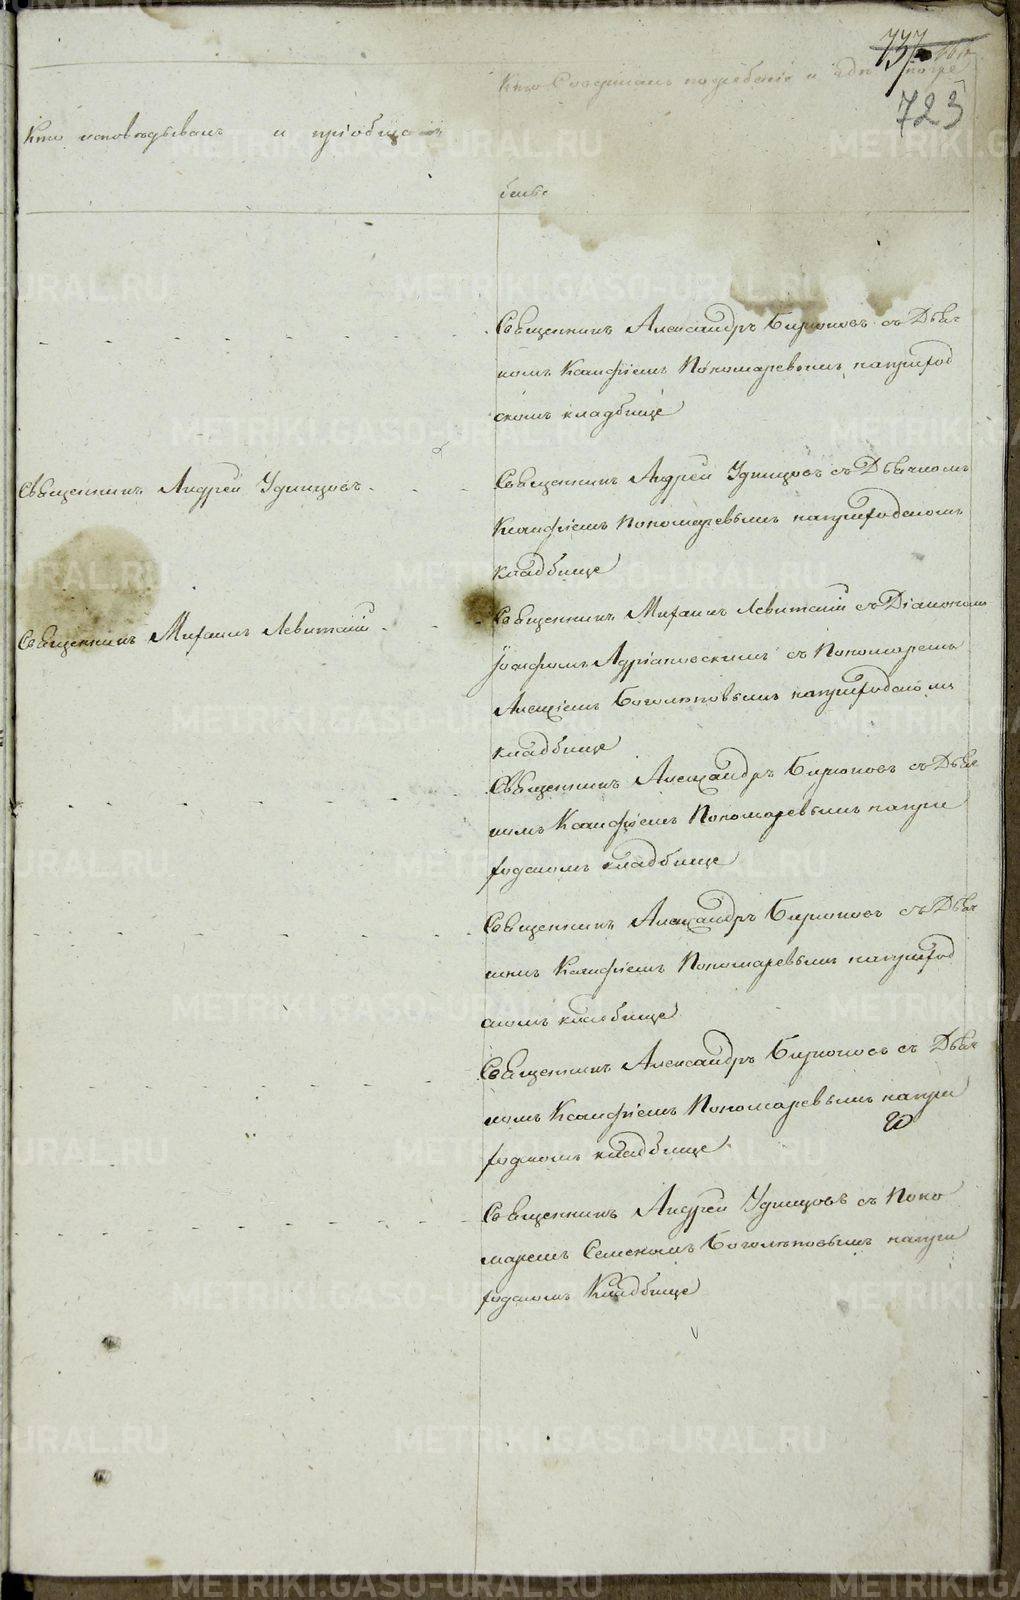 737
723
Кто Совершалъ погребенiе и гдѣ погре
Кто исповѣдывалъ и прiобщалъ
бенъ
Священникъ Александръ Бирюковъ съ Дьяч
комъ Ксанфiемъ Пономаревымъ наприход
скомъ кладбище
Священникъ Андрей Удинцовъ
Священникъ Андрей Удинцовъ съ Дьячкомъ
Ксанфiемъ Пономаревымъ наприходскомъ
кладбище
Священникъ Михаилъ Левитскiй
Священникъ Михаилъ Левитскiй съ Дiакономъ
Iоасфомъ Адрiановскимъ съ Пономаремъ
Алексiемъ Боголюповымъ наприходскомъ
кладбище
Священникъ Александръ Бирюковъ съ Дьяч
комъ Ксанфiемъ Пономаревымъ напри
ходскомъ кладбище
Священникъ Александръ Бирюковъ съ Дьяч
комъ Ксанфiемъ Пономаревымъ наприход
скомъ кладбище
Священникъ Александръ Бирюковъ съ Дьяч
комъ Ксанфiемъ Пономаревымъ напри
ходскомъ кладбище
Священникъ Андрей Удинцовъ съ Поно
маремъ Семеномъ Боголюповымъ напри
ходскомъ Кладбище